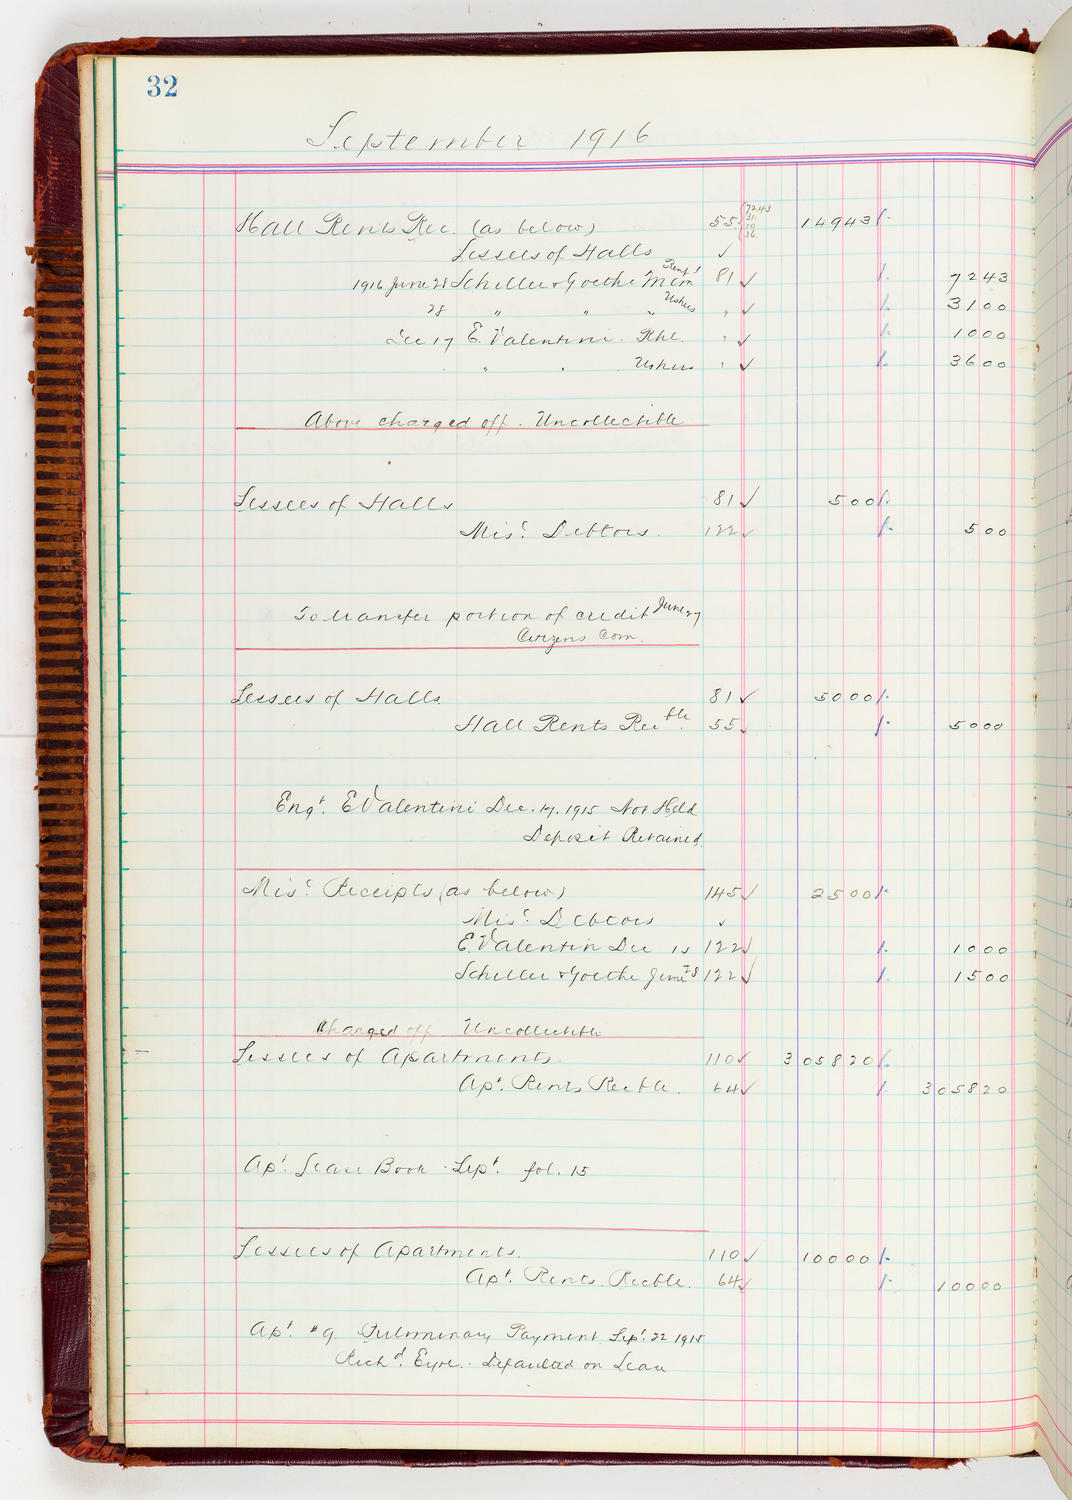 32
September 1916
Hall Rents Rec. (as below) 55 {7243 31. 10 36. 14943
Lessees of Halls ✓
1916 June 28 Schiller & Goethe Mem Rent 81 ✓ 7243
28 " " " Ushers " ✓ 3100
Dec 17 E. Valentini. Rhl. " ✓ 1000
" " Ushers " ✓ 3600
Above charged off. Uncollectible
Lessees of Halls 81 ✓ 500
Misc. Debtors. 122 ✓ 500
To transfer portion of credit June 27
Citizens Com.
Lessees of Halls 81 ✓ 5000
Hall Rents Recble. 55 ✓ 5000
Engt. E Valentini Dec. 17. 1915 Not Held
Deposit Retained.
Misc. Receipts (as below) 145 ✓ 2500
Misc. Debtors ✓
E. Valentin Dec 15 122 ✓ 1000
Schiller & Goethe June 28 122 ✓ 1500
Charged off Uncollectible
Lessees of Apartments. 110 ✓ 305820
Apt. Rents Recble. 64 ✓ 305820
Apt. Lease Book - Sept. fol. 15
Lessees of Apartments. 110 ✓ 10000
Apt. Rents. Recble. 64 ✓ 10000
Apt. #9 Pulminary Payment Sept. 22 1915
Richd. Eyre. Defaulted on Lease